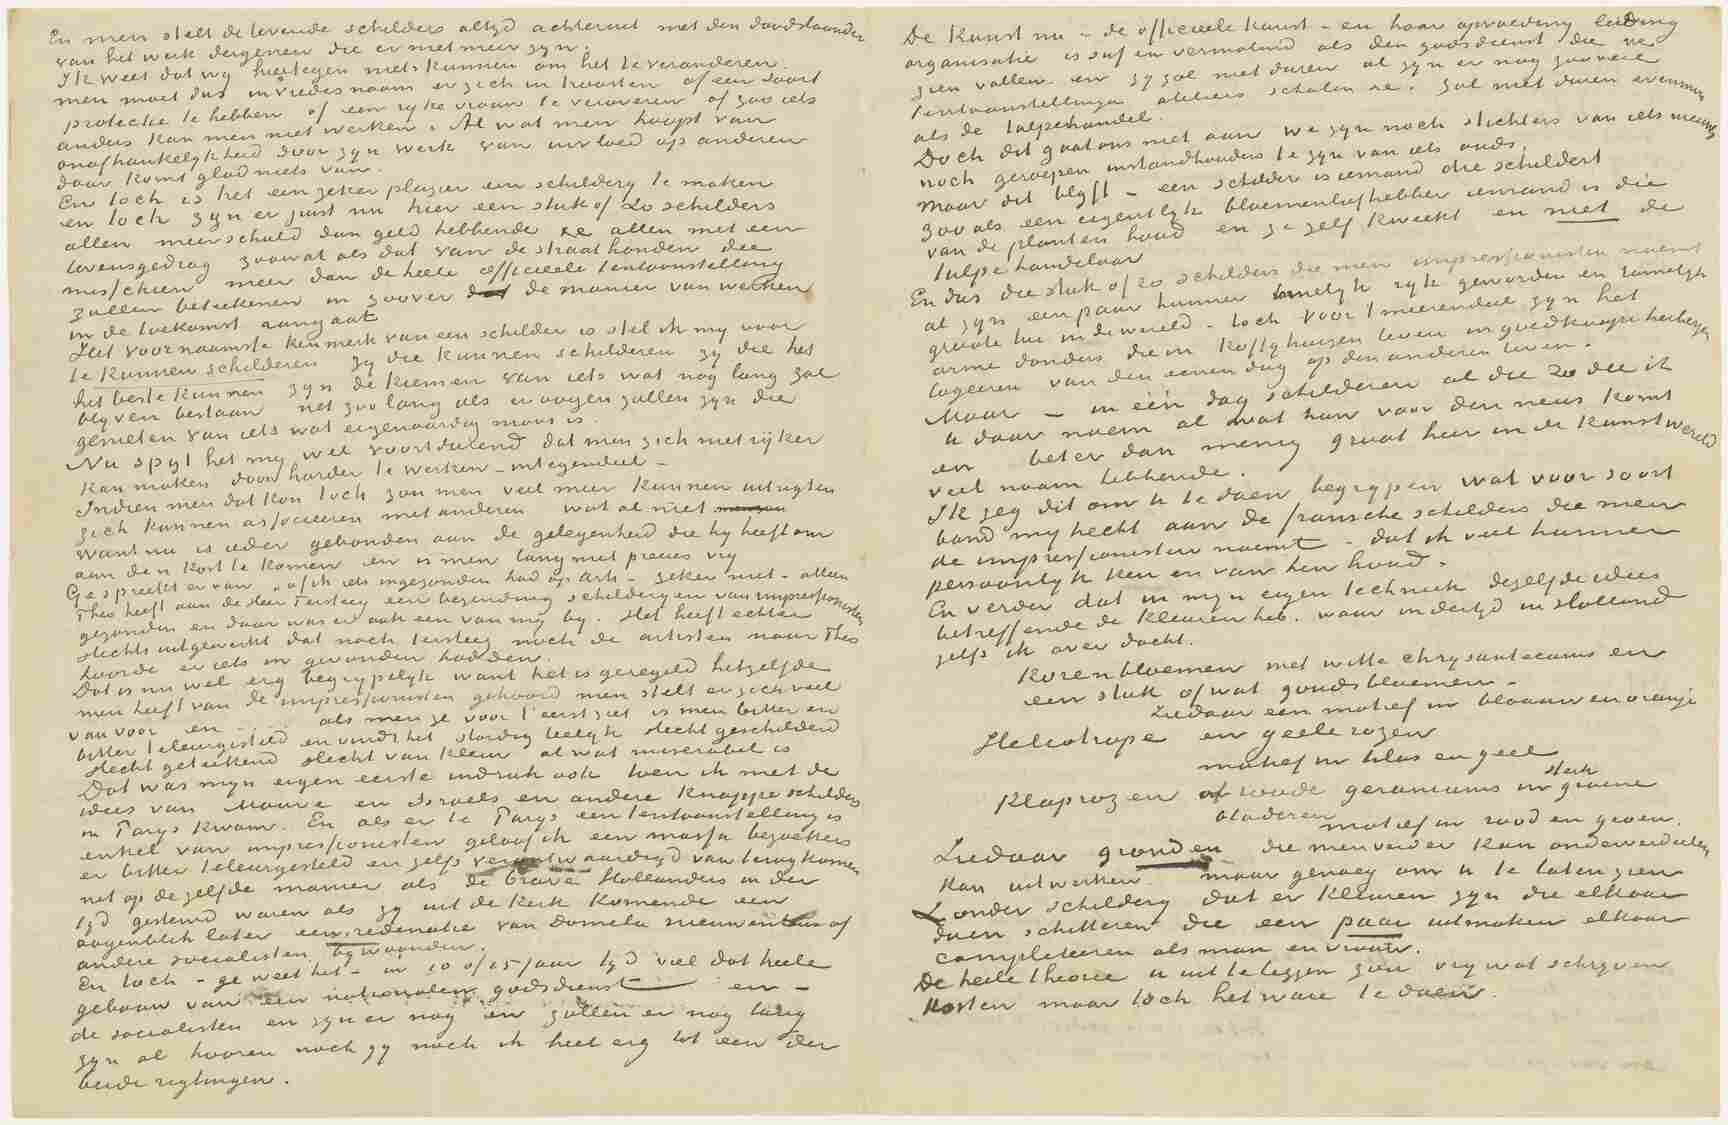 En men stelt de levende schilders altyd achteruit met den doodslaander
van het werk dergenen die er niet meer zyn.
Ik weet dat wy hiertegen niets kunnen om het te veranderen.
men moet dus invredesnaam er zich in troosten of een soort
protectie te hebben of een ryke vrouw te veroveren of zoo iets
anders kan men niet werken. Al wat men hoopt van
onafhankelykheid door zyn werk van invloed op anderen
daar komt glad niets van.
En toch is het een zeker plezier een schildery te maken
en toch zyn er juist nu hier een stuk of 20 schilders
allen meer schuld dan geld hebbende &c allen met een
levensgedrag zoowat als dat van de straathonden die
misschien meer dan de heele officieele tentoonstelling
zullen beteekenen in zoover dat de manier van werken
in de toekomst aangaat
Het voornaamste kenmerk van een schilder is stel ik my voor
te kunnen schilderen zy die kunnen schilderen zy die het
het beste kunnen zyn de kiemen van iets wat nog lang zal
blyven bestaan net zoo lang als er oogen zullen zyn die
genieten van iets wat eigenaardig moois is.
Nu spyt het my wel voortdurend dat men zich niet ryker
kan maken door harder te werken – integendeel –
Indien men dat kon toch zou men veel meer kunnen uitrigten
zich kunnen associeeren met anderen wat al niet
want nu is ieder gebonden aan de gelegenheid die hy heeft om
aan den kost te komen en is men lang niet precies vry
Ge spreekt ervan „of ik iets ingezonden had op Arti – zeker niet – alleen
Theo heeft aan de Heer Tersteeg een bezending schilderyen van impressionisten
gezonden en daar was er ook een van my by. Het heeft echter
slechts uitgewerkt dat noch Tersteeg noch de artisten naar Theo
hoorde er iets in gevonden hadden.
Dat is nu wel erg begrypelyk want het is geregeld hetzelfde
men heeft van de impressionisten gehoord men stelt er zich veel
van voor en ... als men ze voor 't eerst ziet is men bitter en
bitter teleurgesteld en vindt het slordig leelyk slecht geschilderd
slecht geteekend slecht van kleur al wat miserabel is
Dat was myn eigen eerste indruk ook toen ik met de
idees van Mauve en Israels en andere knappe schilders
in Parys kwam. En als er te Parys een tentoonstelling is
enkel van impressionisten geloof ik een massa bezoekers
er bitter teleurgesteld en zelfs verontwaardigd van terug komen
net op dezelfde manier als de brave Hollanders in der
tyd gestemd waren als zy uit de kerk komende een
oogenblik later een redenatie van Domela nieuwenhuis of
andere socialisten bywoonden.
En toch – ge weet het – in 10 of 15 jaar tyd viel dat heele
gebouw van een nationalen godsdienst en –
de socialisten en zyn er nog en zullen er nog lang
zyn al hooren noch gy noch ik heel erg tot een der
beide rigtingen.
De Kunst nu – de officieele kunst – en haar opvoeding leiding
organisatie is suf en vermolmd als den godsdienst die we
zien vallen en zy zal niet duren al zyn er nog zooveel
tentoonstellingen ateliers scholen &c. Zal niet duren evenmin
als de tulpenhandel.
Doch dit gaat ons niet aan we zyn noch stichters van iets nieuws
noch geroepen instandhouders te zyn van iets ouds.
Maar dit blyft – een schilder is iemand die schildert
zooals een eigentlyk bloemenliefhebber iemand is die
van de planten houd en ze zelf kweekt en niet de
tulpehandelaar
En dus die stuk of 20 schilders die men impressionisten noemt
al zyn een paar hunner tamelyk ryk geworden en tamelyk
groote lui in de wereld – toch voor 't meerendeel zyn het
arme donders die in koffyhuizen leven in goedkoope herbergen
logeeren van den eenen dag op den anderen leven.
Maar – in één dag schilderen al die 20 die ik
u daar noem al wat hun voor den neus komt
en beter dan menig groot heer in de kunstwereld
veel naam hebbende.
Ik zeg dit om u te doen begrypen wat voor soort
band my hecht aan de fransche schilders die men
de impressionisten noemt – dat ik veel hunner
persoonlyk ken en van hen houd.
En verder dat in myn eigen techniek dezelfde idees
betreffende de kleuren heb. waar indertyd in Holland
zelfs ik over dacht.
Korenbloemen met witte chrysantecums en
een stuk of wat goudsbloemen –
Ziedaar een motief in blaauw en oranje
Heliotrope en geele rozen
motief in lilas en geel
Klaprozen of roode geraniums in sterk groene
bladeren
motief in rood en groen.
Ziedaar gronden die men verder kan onderverdeelen
kan uitwerken maar genoeg om u te laten zien
zonder schildery dat er kleuren zyn die elkaar
doen schitteren die een paar uitmaken elkaar
completeeren als man en vrouw.
De heele theorie u uit te leggen zou vry wat schryven
kosten maar toch het ware te doen.